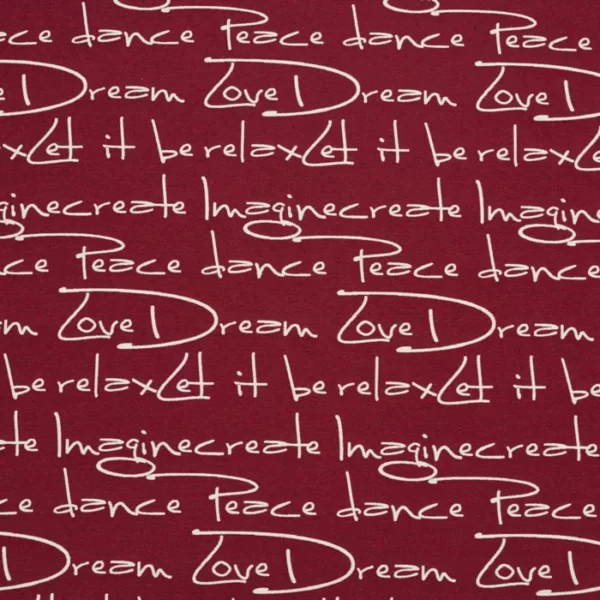 ace dance Peace dance Peace
e I Dream Love I Dream Love I
x Let it be relax Let it be relax Le
gine create Imagine create Imagine
ce Peace dance Peace dance
m Love I Dream Love I Dream
be relax Let it be relax Let it be
te Imagine create Imagine create
ce dance Peace dance Peace
I Dream Love I Dream Love I